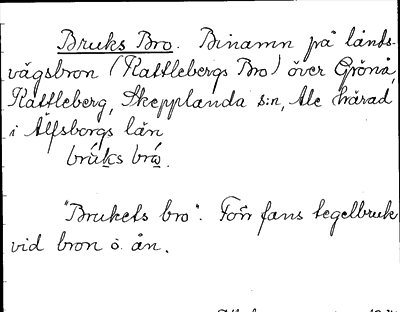 Bruks Bro. Binamn på lands-
vägsbron (Kattlebergs Bro) över Grönå,
Kattleberg, Skepplanda s:n, Ale härad
i Älfsborgs län
brúks brå̀.
"Brukets bro". Förr fans tegelbruk
vid bron o. ån.